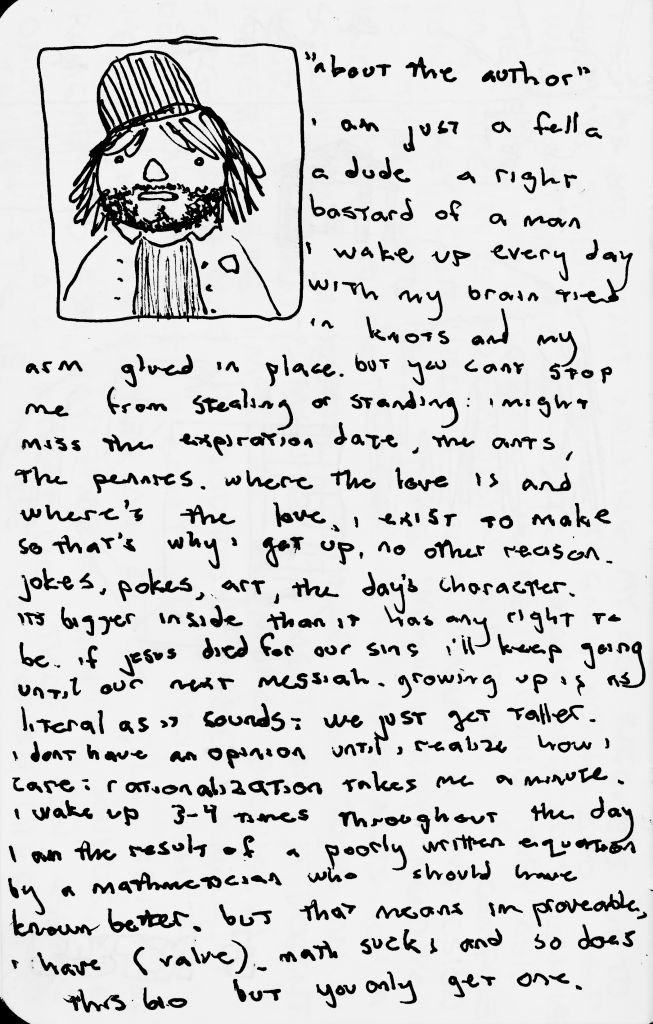 "About the author"
i am just a fella
a dude a right
bastard of a man
i wake up every day
with my brain tied
in knots and my
arm glued in place. but you cant stop
me from stealing or standing: i might
miss the expiration date, the ants,
the pennies. where the love is and
where's the love. i exist to make
so that's why i get up, no other reason.
jokes, pokes, art, the day's character.
its bigger inside than it has any right to
be. if jesus died for our sins i'll keep going
until our next messiah. growing up is as
literal as it sounds: we just get taller.
i dont have an opinion until i realize how i
care: rationalization takes me a minute.
i wake up 3-4 times throughout the day
I am the result of a poorly written equation
by a mathmetician who should have
known better. but that means im proveable,
i have (value). math sucks and so does
this bio but you only get one.